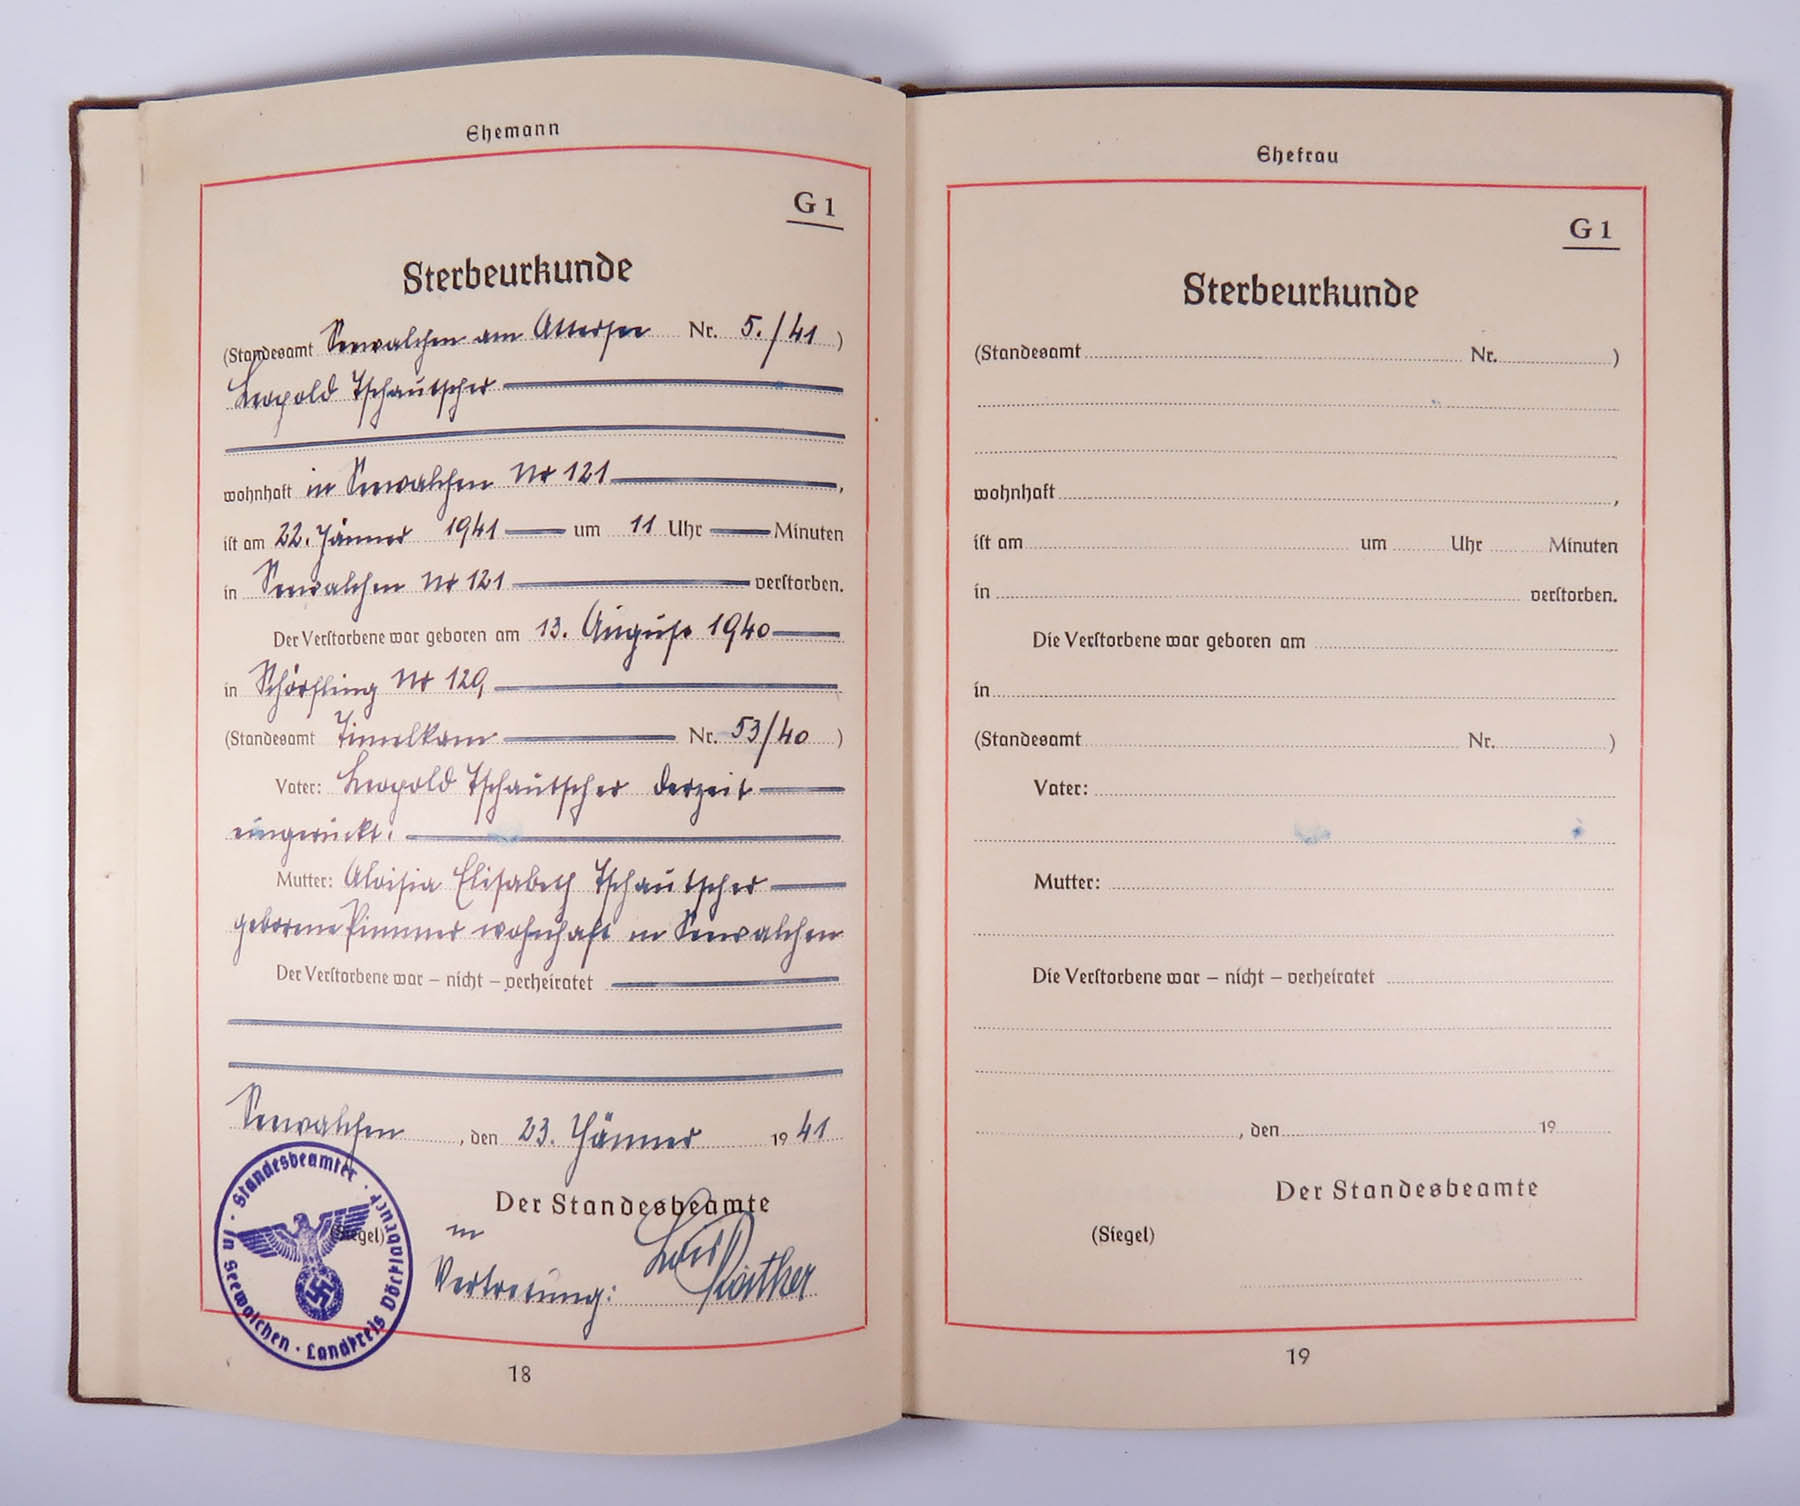 Ehemann
G 1
Sterbeurkunde
(Standesamt Seewalchen am Attersee Nr. 5./41)
Leopold Tschautscher
wohnhaft in Seewalchen Nr 121,
ist am 22. Jänner 1941 um 11 Uhr Minuten
in Seewalchen Nr 121 verstorben.
Der Verstorbene war geboren am 13. August 1940
in Schörfling Nr 129,
(Standesamt Timelkam Nr. 53/40)
Vater: Leopold Tschautscher derzeit
eingerückt.
Mutter: Aloisia Elisabeth Tschautscher
geborene Pimmer wohnhaft in Seewalchen
Der Verstorbene war – nicht – verheiratet
Seewalchen, den 23. Jänner 1941
Der Standesbeamte
(Siegel)
in
Vertretung:
Standesbeamter · in Seewalchen · Landkreis Vöcklabruck ·
18
Ehefrau
G 1
Sterbeurkunde
(Standesamt Nr. )
wohnhaft ,
ist am um Uhr Minuten
in verstorben.
Die Verstorbene war geboren am
in
(Standesamt Nr. )
Vater:
Mutter:
Die Verstorbene war – nicht – verheiratet
, den 19
Der Standesbeamte
(Siegel)
19